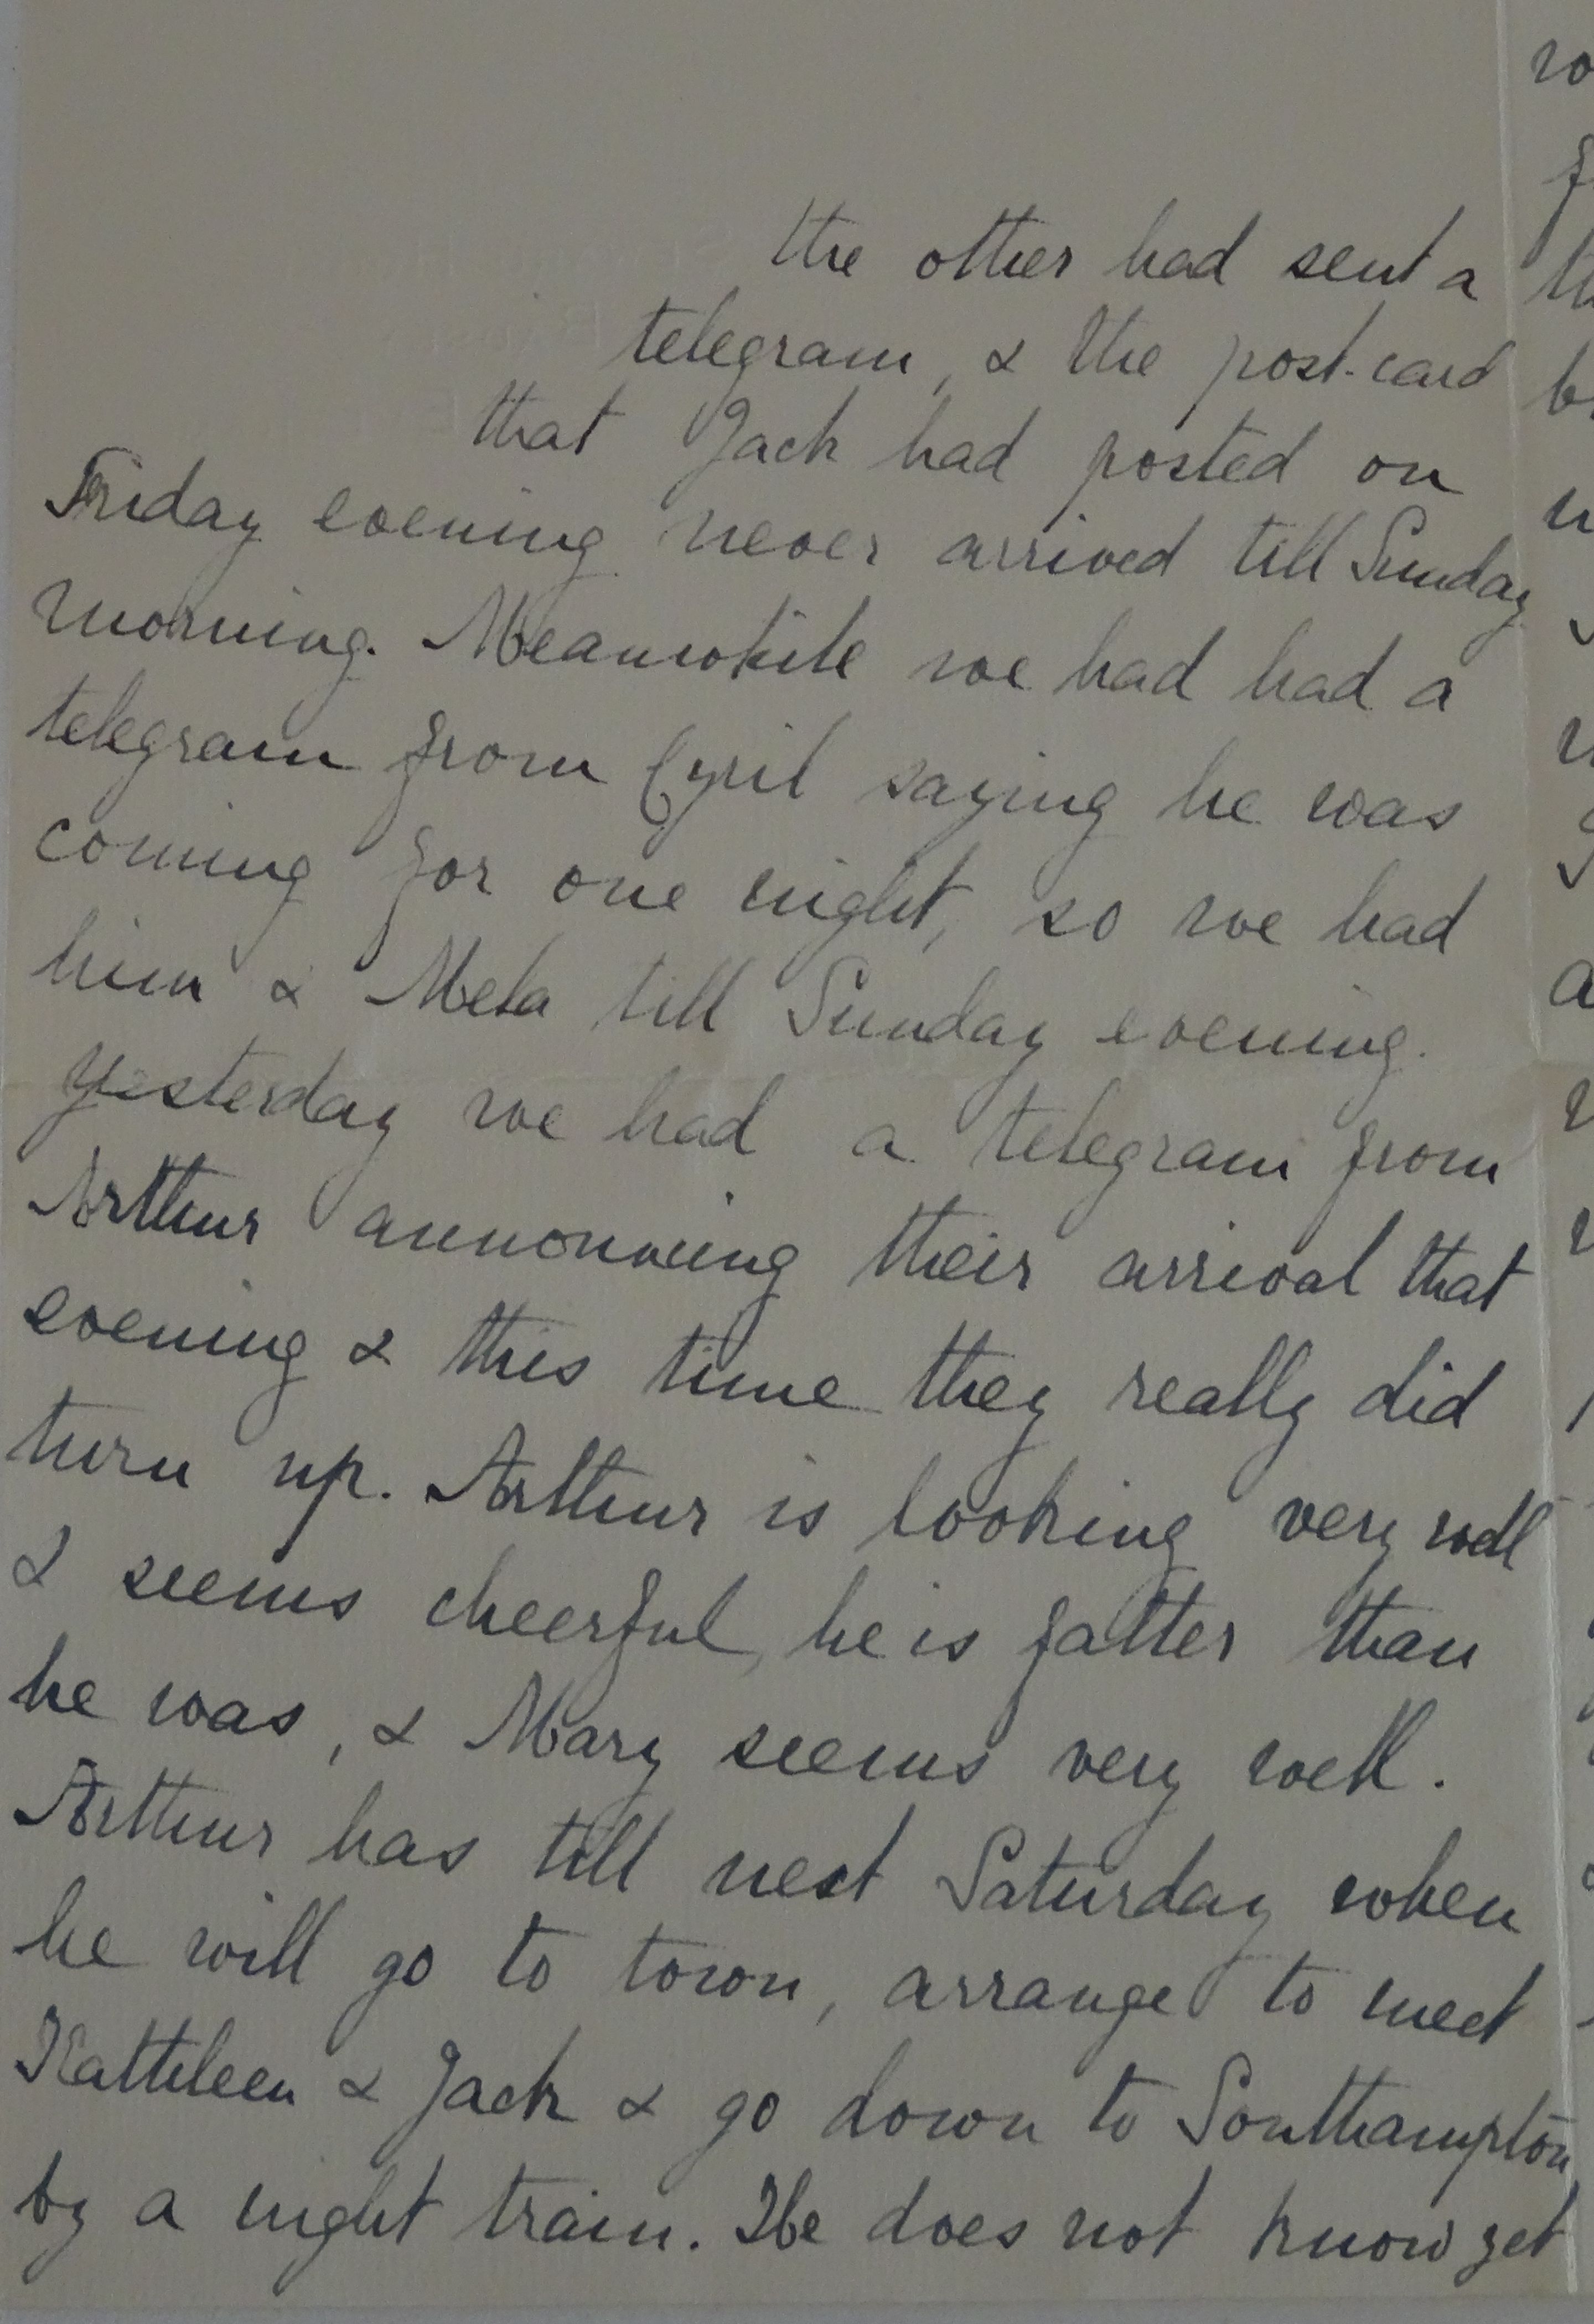 the other had sent a
telegram, & the post-card
that Jack had posted on
Friday evening never arrived till Sunday
morning. Meanwhile we had had a
telegram from Cyril saying he was
coming for one night, so we had
him & Mela till Sunday evening.
Yesterday we had a telegram from
Arthur announcing their arrival that
evening & this time they really did
turn up. Arthur is looking very well
& seems cheerful, he is fatter than
he was, & Mary seems very well.
Arthur has till next Saturday when
he will go to town, arrange to meet
Kathleen & Jack & go down to Southampton
by a night train. He does not know yet